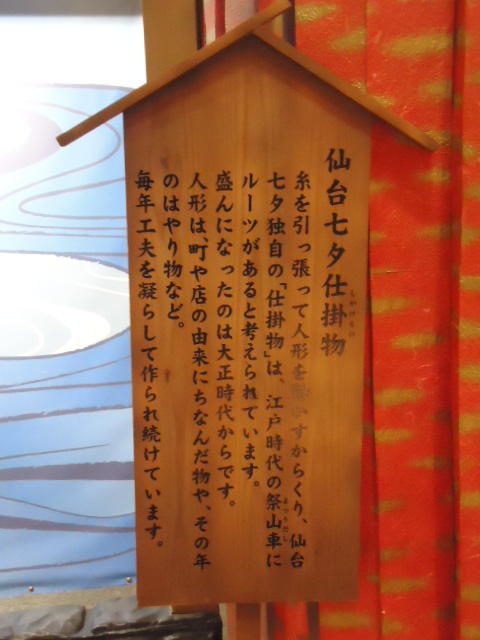 仙台七夕仕掛物
しかけもの
糸を引っ張って人形を動かすからくり、仙台
七夕独自の「仕掛物」は、江戸時代の祭山車に
まつりだし
ルーツがあると考えられています。
盛んになったのは大正時代からです。
人形は、町や店の由来にちなんだ物や、その年
のはやり物など。
毎年工夫を凝らして作られ続けています。